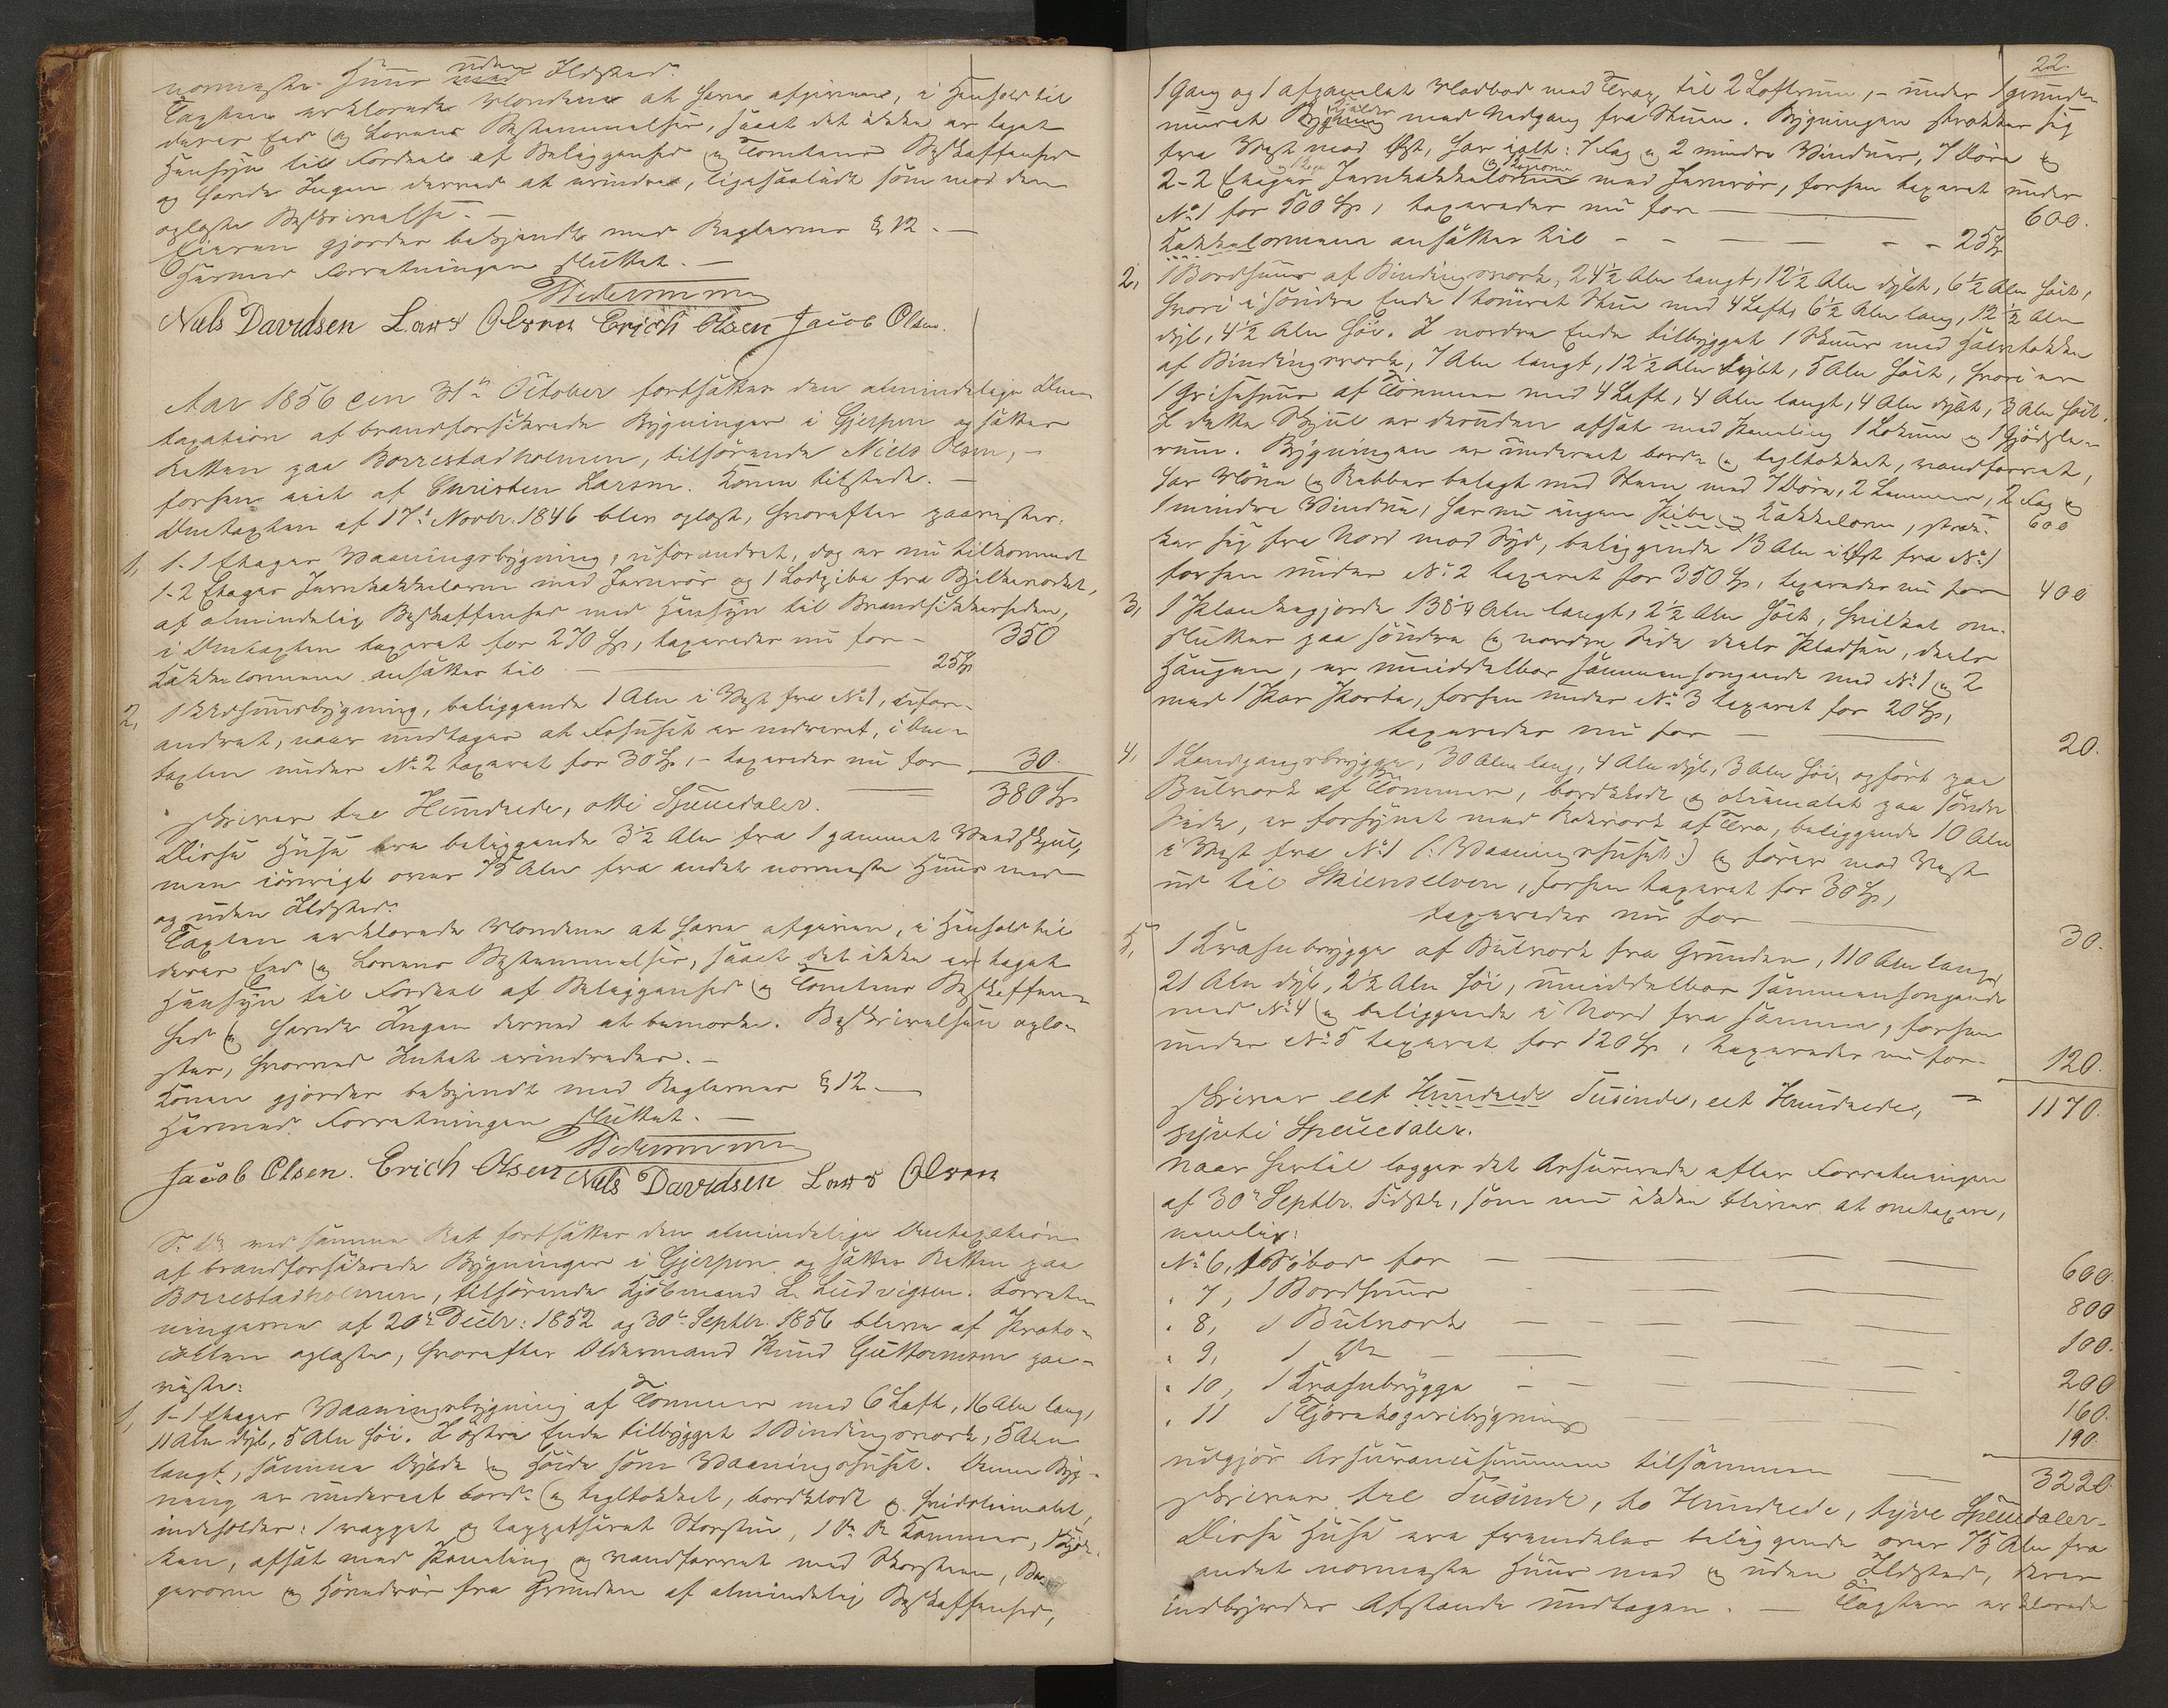 nærmeste Huus uden Ildsted.
Taxten erklærede Mændene at have afgiven, i Henhold til
deres Eed og Lovens Bestemmelser, saaat det ikke er taget
Hensyn til Fordeel af Beliggenhed og Tomtens Beskaffenhed
og havde Ingen derved at erindre, ligesaalidt som mod den
oplæste Beskrivelse. —
Eieren gjordes bekjendt med Reglernes § 12. —
Hermed Forretningen sluttet. —
Niels Davidsen Lars Olsen Erich Olsen Jacob Olsen.
Aar 1856 den 31te October fortsattes den almindelige Om-
taxation af brandforsikrede Bygninger i Gjerpen og sattes
Retten paa Borrestadholmen, tilhørende Niels Olsen, —
forhen eiet af Christen Larsen. Konen tilstede. —
Omtaxten af 17de Novbr. 1846 blev oplæst, hvorefter paavistes:
1, 1-1 Etages Vaaningsbygning, uforandret, dog er nu tilkommet
1-2 Etages Jernkakkelovn med Jernrør og 1 Lodpibe fra Bjelkeværket,
af almindelig Beskaffenhed med Hensyn til Brandsikkerheden,
i Omtaxten taxeret for 270 Sp, taxeredes nu for — 350
Kakkelovnene ansættes til — 25 Sp
2, 1 Udhuusbygning, beliggende 1 Alen i Vest fra No 1, ufor-
andret, naar undtages at Fæhuset er nedrevet, i Om-
taxten under No 2 taxeret for 30 Sp, — taxeredes nu for 30.
380 Sp
skriver tre Hundrede, otti Speciedaler.
Disse Huse ere beliggende 3½ Alen fra 1 gammelt Vedskjul,
men iøvrigt over 75 Alen fra andet nærmeste Huus med
og uden Ildsted.
Taxten erklærede Mændene at have afgiven, i Henhold til
deres Eed og Lovens Bestemmelser, saaat det ikke er taget
Hensyn til Fordeel af Beliggenhed og Tomtens Beskaffen-
hed og havde Ingen derved at bemærke. Beskrivelsen oplæ-
stes, hvorved Intet erindredes. —
Konen gjordes bekjendt med Reglernes § 12 —
Hermed Forretningen sluttet. —
Jacob Olsen. Erich Olsen Niels Davidsen Lars Olsen
S. D. ved samme Ret fortsattes den almindelige Omtaxation
af brandforsikrede Bygninger i Gjerpen og sattes Retten paa
Borrestadholmen, tilhørende Kjøbmand L. Ludvigsen. Forret-
ningerne af 20de Decbr: 1852 og 30te Septbr. 1856 bleve af Proto-
collen oplæste, hvorefter Oldermand Knud Guttormsen paa-
viste:
1, 1-1 Etages Vaaningsbygning af Tømmer med 6 Laft, 16 Alen lang,
11 Alen dyb, 5 Alen høi. I østre Ende tilbygget 1 Bindingsværk, 5 Alen
langt, samme Dybde og Høide som Vaaningshuset. Denne Byg-
ning er underret bord- og tegltækket, bordklædt og hvidoliemalet,
indeholder: 1 træppet og tappetseret Storstue, 1 Do Do Kammer, 1 Kjøk-
ken, afsat med Paneling og vandfarvet med Skorsteen, Ba-
gerovn og Hovedrør fra Grunden af almindelig Beskaffenhed,
22.
1 Gang og 1 afpanelet Madbod med Trap til 2 Loftrum, — under 1 grund-
muret Kjelder med Nedgang fra Stuen. Bygningen strækker sig
fra Vest mod Øst, har ialt: 7 Fag og 2 mindre Vinduer, 7 Døre og
2-2 Etages Jernkakkelovne med Jernrør, forhen taxeret under
No 1 for 500 Sp, taxeredes nu for — 600.
Kakkelovnene ansættes til — 25 Sp
2, 1 Bordhuus af Bindingsværk, 24½ Alen langt, 12½ Alen dybt, 6½ Alen høit,
hvori i søndre Ende 1 tømret Stue med 4 Laft, 6½ Alen lang, 12½ Alen
dyb, 4½ Alen høi. I nordre Ende tilbygget 1 Skuur med Halvtække
af Bindingsværk, 7 Alen langt, 12½ Alen dybt, 5 Alen høit, hvori er
1 Grisehuus af Tømmer med 4 Laft, 4 Alen langt, 4 Alen dybt, 3 Alen høit.
I dette Skjul er desuden afsat med Paneling 1 Lokum og 1 Gjødsle-
rum. Bygningen er underret bord- og tegltækket, vandfarvet,
har Møne og Rabber belagt med Steen med 7 Døre, 2 Lemmer, 2 Fag og
1 mindre Vindue, har nu ingen Pibe og Kakkelovn, stræk-
ker sig fra Nord mod Syd, beliggende 13 Alen i Øst fra No 1
forhen under No 2 taxeret for 350 Sp, taxeredes nu for 400
3, 1 Plankegjærde 138¼ Alen langt, 2½ Alen høit, hvilket om-
slutter paa søndre og nordre Side deels Pladsen, deels
Haugen, er umiddelbar sammenhængende med No 1 og 2
med 1 Par Porte, forhen under No 3 taxeret for 20 Sp,
taxeredes nu for — 20.
4, 1 Landgangsbrygge, 30 Alen lang, 4 Alen dyb, 3 Alen høi, opført paa
Bulværk af Tømmer, bordklædt og oliemalet paa søndre
Side, er forsynet med Rekværk af Træ, beliggende 10 Alen
i Vest fra No 1 (: Vaaningshuset :) og fører mod Vest
ud til Skienselven, forhen taxeret for 30 Sp,
taxeredes nu for — 30.
5, 1 Krasebrygge af Bulværk fra Grunden, 110 Alen lang,
21 Alen dyb, 2½ Alen høi, umiddelbar sammenhængende
med No 4 og beliggende i Nord fra samme, forhen
under No 5 taxeret for 120 Sp, taxeredes nu for — 120.
skriver eet Hundrede Tusinde, eet Hundrede, — 1170.
sytti Speciedaler.
Naar hertil lægges det Assurerede efter Forretningen
af 30te Septbr. sidste, som nu ikke bliver at omtaxere,
nemlig:
No 6, 1 Søbod for — 600.
" 7, 1 Bordhuus — 800
" 8, 1 Bulværk — 100.
" 9, 1 Do — 200
" 10, 1 Krasebrygge — 160.
" 11 1 Tjærekogeribygning — 190.
udgjør Assurancesummen tilsammen — 3220.
skriver tre Tusinde, to Hundrede, tyve Speciedaler.
Disse Huse ere fremdeles beliggende over 75 Alen fra
andet nærmeste Huus med og uden Ildsted, deres
indbyrdes Afstande undtagen. — Taxten erklærede